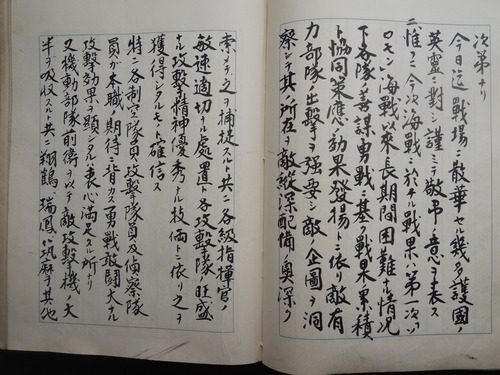 次第ナリ
今日迄戰場ニ散華セル幾多護國ノ
英靈ニ對シ謹ミテ敬弔ノ意ヲ表ス
ニ惟フニ今次海戰ニ於ケル戰果ハ第一次「ソ
ロモン」海戰以來長期間困難ナル情況
下各隊ノ善謀勇戰ニ基ク戰果累積
ト協同策應ノ効果發揚トニ依リ敵有
力部隊ノ出撃ヲ強要シ敵ノ企圖ヲ洞
察シテ其ノ所在ヲ敵縱深配備ノ奥深ク
索メテ之ヲ捕捉スルト共ニ各級指揮官ノ
敏速適切ナル處置ト各攻撃隊ノ旺盛
ナル攻撃精神優秀ナル技倆トニ依リ之ヲ
獲得シタルモノト確信ス
特ニ各制空隊員攻撃隊員及偵察隊
員ガ本職ノ期待ニ背カズ勇戰敢鬪大ナル
攻撃効果ヲ顯シタルハ衷心滿足スル所ナリ
又機動部隊前衛ヲ以テ敵攻撃機ノ大
半ヲ吸収スルト共ニ翔鶴、瑞鳳、筑摩ヲ其他